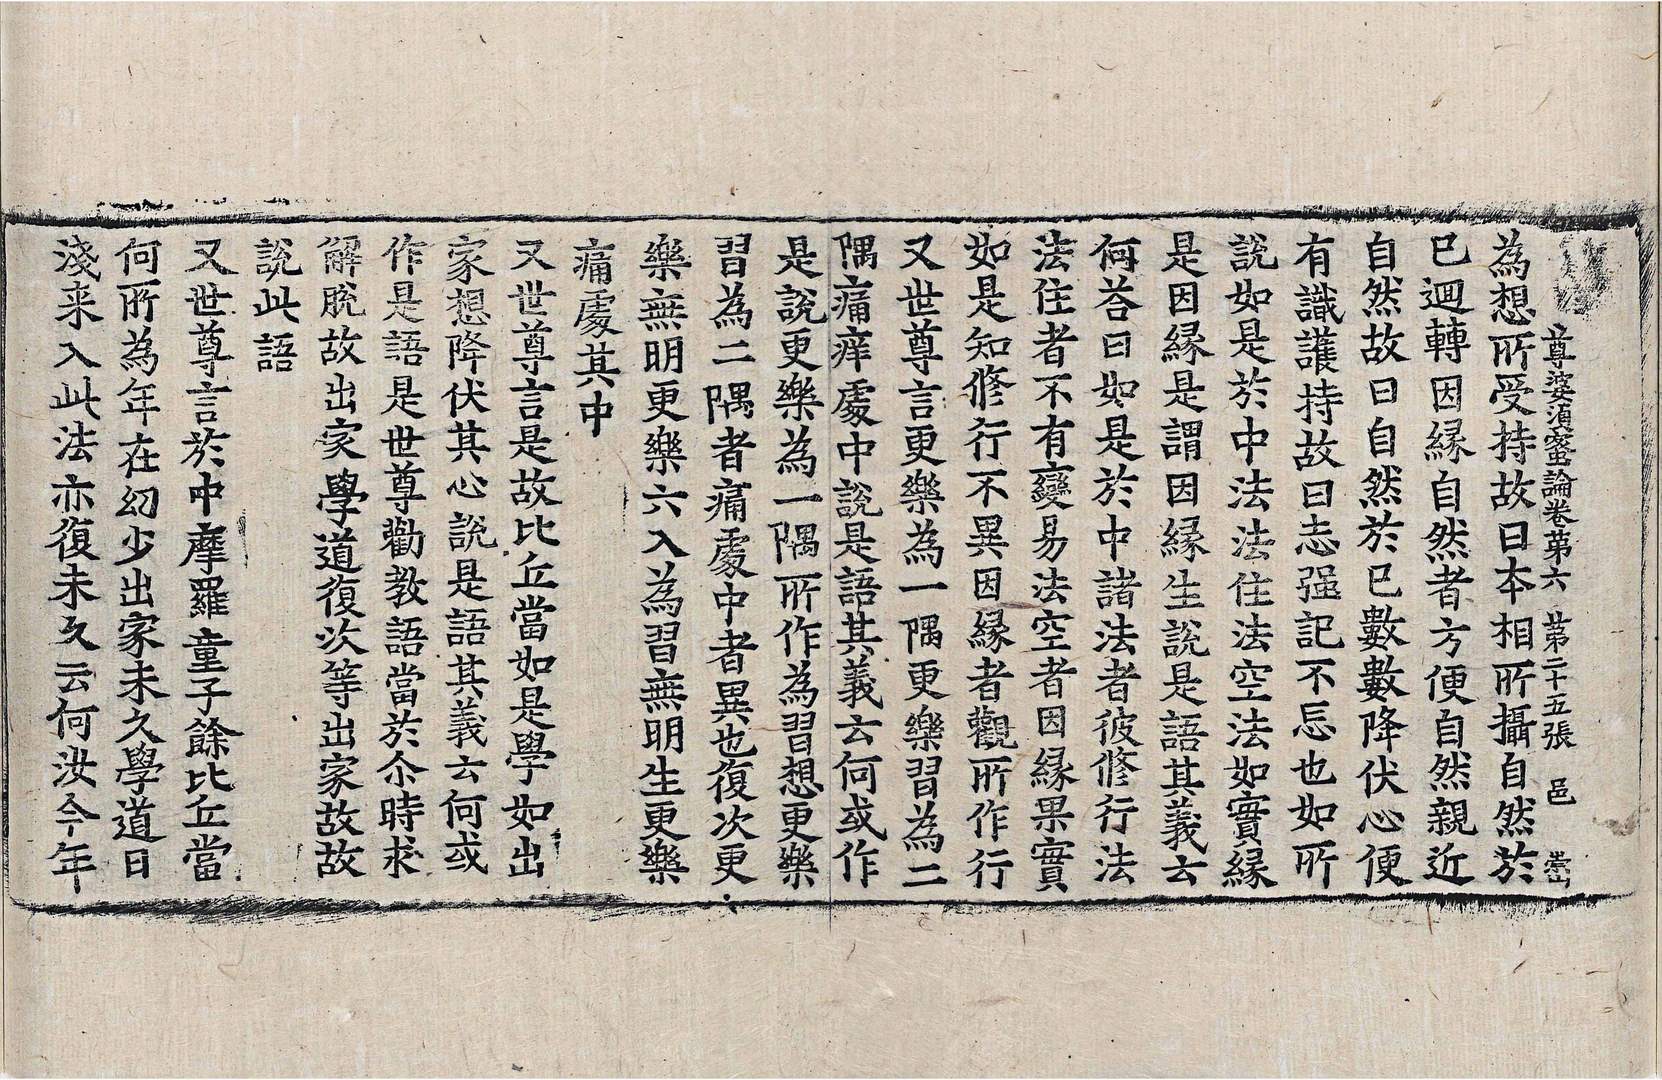 尊婆湏蜜論卷第六 第二十五張 邑 崇山
為想所受持故曰本相所攝自然於
巳迴轉因緣自然者方便自然親近
自然故曰自然於巳數數降伏心便
有識護持故曰志强記不忘也如所
說如是於中法法住法空法如實緣
是因緣是謂因緣生說是語其義云
何荅曰如是於中諸法者彼修行法
法住者不有變易法空者因緣果實
如是知修行不異因緣者觀所作行
又世尊言更樂為一隅更樂習為二
隅痛痒處中說是語其義云何或作
是說更樂為一隅所作為習想更樂
習為二隅者痛處中者異也復次更
樂無明更樂六入為習無明生更樂
痛處其中
又世尊言是故比丘當如是學如出
家想降伏其心說是語其義云何或
作是語是世尊勸教語當於尒時求
解脫故出家學道復次等出家故故
說此語
又世尊言於中摩羅童子餘比丘當
何所為年在幼少出家未久學道日
淺来入此法亦復未久云何汝今年